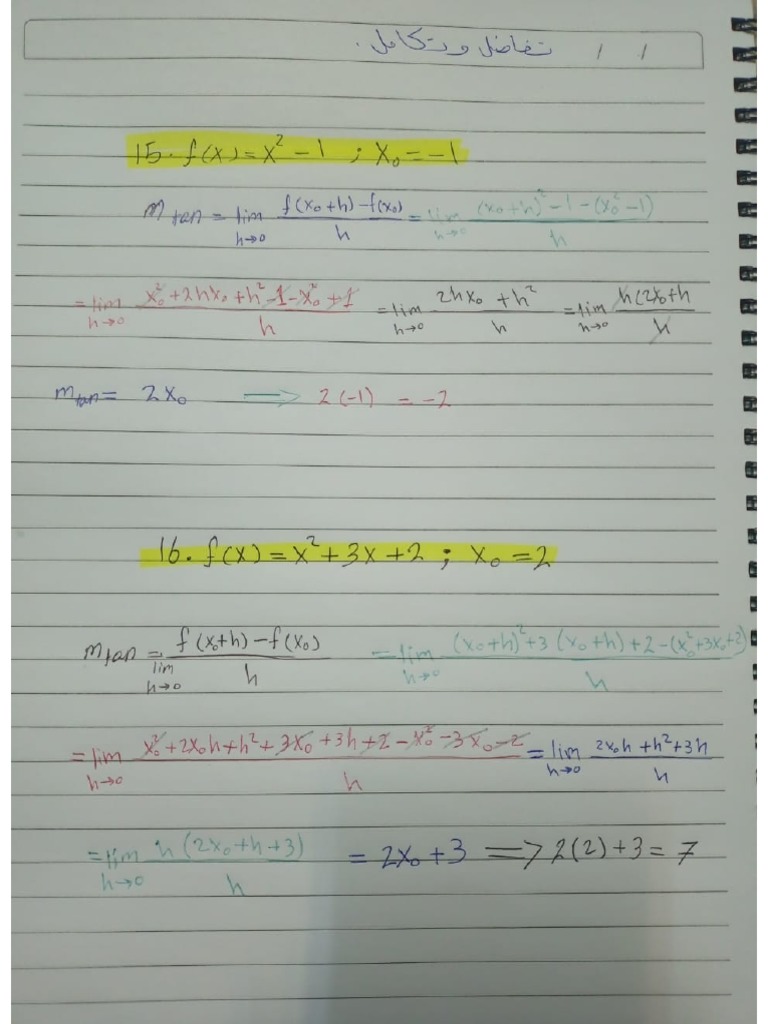 تفاضل وتكامل. / /
15. f(x) = x² - 1 ; x₀ = -1
m tan = lim h→0 (f(x₀+h) - f(x₀))/h = lim h→0 ((x₀+h)² - 1 - (x₀² - 1))/h
= lim h→0 (x₀² + 2hx₀ + h² - 1 - x₀² + 1)/h = lim h→0 (2hx₀ + h²)/h = lim h→0 h(2x₀+h/h
m tan = 2x₀ ⟹ 2(-1) = -2
16. f(x) = x² + 3x + 2 ; x₀ = 2
m tan = lim h→0 (f(x₀+h) - f(x₀))/h = lim h→0 ((x₀+h)² + 3(x₀+h) + 2 - (x₀² + 3x₀ + 2))/h
= lim h→0 (x₀² + 2x₀h + h² + 3x₀ + 3h + 2 - x₀² - 3x₀ - 2)/h = lim h→0 (2x₀h + h² + 3h)/h
= lim h→0 h(2x₀ + h + 3)/h = 2x₀ + 3 ⟹ 2(2) + 3 = 7